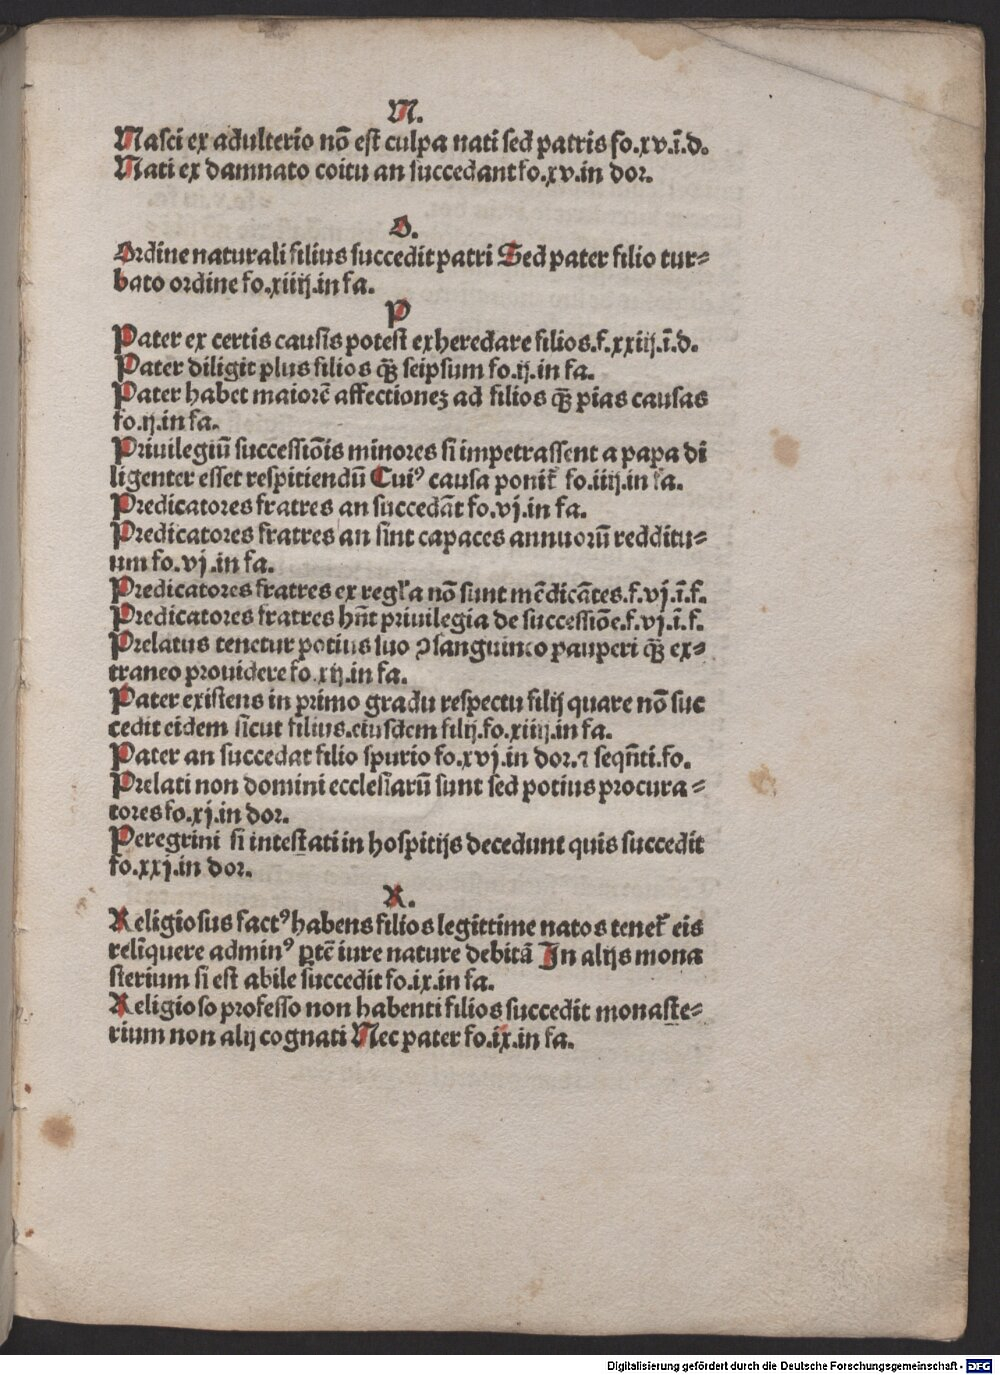 N.
Nasci ex adulterio nō est culpa nati sed patris fo.xv.ī.d.
Nati ex damnato coitu an succedant fo.xv.in dor.
O.
Ordine naturali filius succedit patri Sed pater filio tur⸗
bato ordine fo.xiiij.in fa.
P
Pater ex certis causis potest exheredare filios.f.xxiij.ī.d.
Pater diligit plus filios qꝫ̄ seipsum fo.ij.in fa.
Pater habet maiorē affectionez ad filios qꝫ̄ pias causas
fo.ij.in fa.
Priuilegiū successiōis minores si impetrassent a papa di
ligenter esset respitiendū Cuiꝰ causa ponit᷑ fo.iiij.in fa.
Predicatores fratres an succedāt fo.vj.in fa.
Predicatores fratres an sint capaces annuorū redditu⸗
um fo.vj.in fa.
Predicatores fratres ex regl̄a nō sunt mēdicātes.f.vj.ī.f.
Predicatores fratres hn̄t priuilegia de successiōe.f.vj.ī.f.
Prelatus tenetur potius suo ꝯsanguineo pauperi qꝫ̄ ex⸗
traneo prouidere fo.xij.in fa.
Pater existens in primo gradu respectu filij quare nō suc
cedit eidem sicut filius.eiusdem filij.fo.xiiij.in fa.
Pater an succedat filio spurio fo.xvj.in dor.⁊ seqn̄ti.fo.
Prelati non domini ecclesiarū sunt sed potius procura⸗
tores fo.xj.in dor.
Peregrini si intestati in hospitijs decedunt quis succedit
fo.xxj.in dor.
R.
Religiosus factꝰ habens filios legittime natos tenet᷑ eis
relīquere adminꝰ ꝑtē iure nature debitā In alijs mona
sterium si est abile succedit fo.ix.in fa.
Religioso professo non habenti filios succedit monaste⸗
rium non alij cognati Nec pater fo.ix.in fa.
Digitalisierung gefördert durch die Deutsche Forschungsgemeinschaft - DFG